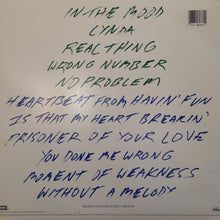 IN THE MOOD
LYNDA
REAL THING
WRONG NUMBER
NO PROBLEM
HEARTBEAT FROM HAVIN' FUN
IS THAT MY HEART BREAKIN'
PRISONER OF YOUR LOVE
YOU DONE ME WRONG
MOMENT OF WEAKNESS
WITHOUT A MELODY